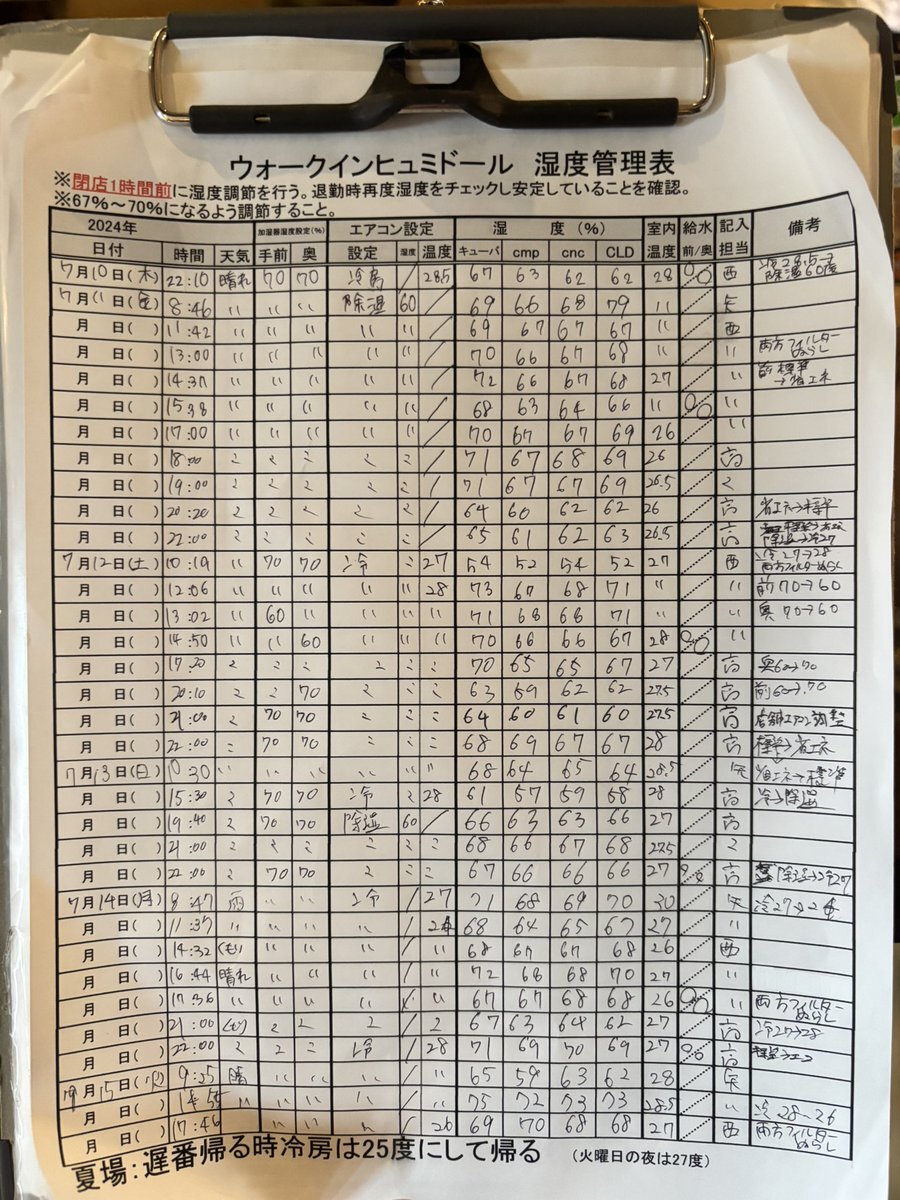 ウォークインヒュミドール 湿度管理表
※閉店1時間前に湿度調節を行う。退勤時再度湿度をチェックし安定していることを確認。
※67%～70%になるよう調節すること。
2024年 加湿器湿度設定(%) エアコン設定 湿 度 (%) 室内 給水 記入 備考
日付 時間 天気 手前 奥 設定 湿度 温度 キューバ cmp cnc CLD 温度 前/奥 担当
7月10日(木) 22:10 晴れ 70 70 冷房 / 28.5 67 63 62 62 28 西 冷28.5→除湿60度
7月11日(金) 8:46 〃 〃 〃 除湿 60 / 69 66 68 79 〃 矢
月 日( ) 11:42 〃 〃 〃 〃 〃 / 69 67 67 67 〃 西
月 日( ) 13:00 〃 〃 〃 〃 〃 / 70 66 67 68 〃 〃 両方フィルターぬらし
月 日( ) 14:37 〃 〃 〃 〃 〃 / 72 66 67 68 27 〃 前標準→省エネ
月 日( ) 15:38 〃 〃 〃 〃 〃 / 68 63 64 66 〃 〃
月 日( ) 17:00 〃 〃 〃 〃 〃 / 70 67 67 69 26 〃
月 日( ) 18:00 〃 〃 〃 〃 〃 / 71 67 68 69 26 高
月 日( ) 19:00 〃 〃 〃 〃 〃 / 71 67 67 69 26.5 〃
月 日( ) 20:20 〃 〃 〃 〃 〃 / 64 60 62 62 26 高 省エネ→標準
月 日( ) 22:00 〃 〃 〃 〃 〃 / 65 61 62 63 26.5 高 除湿→冷27
7月12日(土) 10:19 〃 70 70 冷 / 27 54 52 54 52 27 西 冷27→28 両方フィルターぬらし
月 日( ) 12:06 〃 〃 〃 〃 〃 28 73 67 68 71 〃 〃 前70→60
月 日( ) 13:02 〃 60 〃 〃 〃 〃 71 66 66 71 〃 〃 奥70→60
月 日( ) 14:50 〃 〃 60 〃 〃 〃 70 66 66 67 28 〃
月 日( ) 17:20 〃 〃 〃 〃 〃 〃 70 65 65 67 27 高 奥60→70
月 日( ) 20:10 〃 〃 70 〃 〃 〃 63 59 62 62 27.5 高 前60→70
月 日( ) 21:00 〃 70 70 〃 〃 〃 64 60 61 60 27.5 高 店舗エアコン調整
月 日( ) 22:00 〃 70 70 〃 〃 〃 68 69 67 67 28 高 標準→省エネ
7月13日(日) 10:30 〃 〃 〃 〃 〃 〃 68 64 65 64 28.5 矢 省エネ→標準
月 日( ) 15:30 〃 70 70 冷 〃 28 61 57 59 58 28 高 冷→除湿
月 日( ) 19:40 〃 70 70 除湿 60 / 66 63 63 66 27 高
月 日( ) 21:00 〃 〃 〃 〃 〃 〃 68 66 67 68 27.5 〃
月 日( ) 22:00 〃 70 70 〃 〃 〃 67 66 66 66 27 高 除湿→冷27
7月14日(月) 8:47 雨 〃 〃 冷 / 27 71 68 69 70 30 矢 冷27→26
月 日( ) 11:37 〃 〃 〃 〃 / 26 68 64 65 67 27 〃
月 日( ) 14:32 くもり 〃 〃 〃 / 〃 68 67 67 68 26 西
月 日( ) 16:44 晴れ 〃 〃 〃 / 〃 72 68 68 70 27 〃
月 日( ) 17:36 〃 〃 〃 〃 〃 67 67 68 68 26 〃 両方フィルターぬらし
月 日( ) 21:00 くもり 〃 〃 〃 / 〃 67 63 64 62 27 高 冷27→28
月 日( ) 22:00 〃 〃 〃 冷 / 28 71 69 70 69 27 高
7月15日(火) 9:35 晴 〃 〃 〃 / 〃 65 59 63 62 28 矢
月 日( ) 14:55 〃 〃 〃 〃 / 〃 75 72 73 73 28.5 〃 冷28→26
月 日( ) 17:46 〃 〃 〃 〃 / 26 69 70 68 68 27 西 両方フィルターぬらし
夏場：遅番帰る時冷房は25度にして帰る (火曜日の夜は27度)